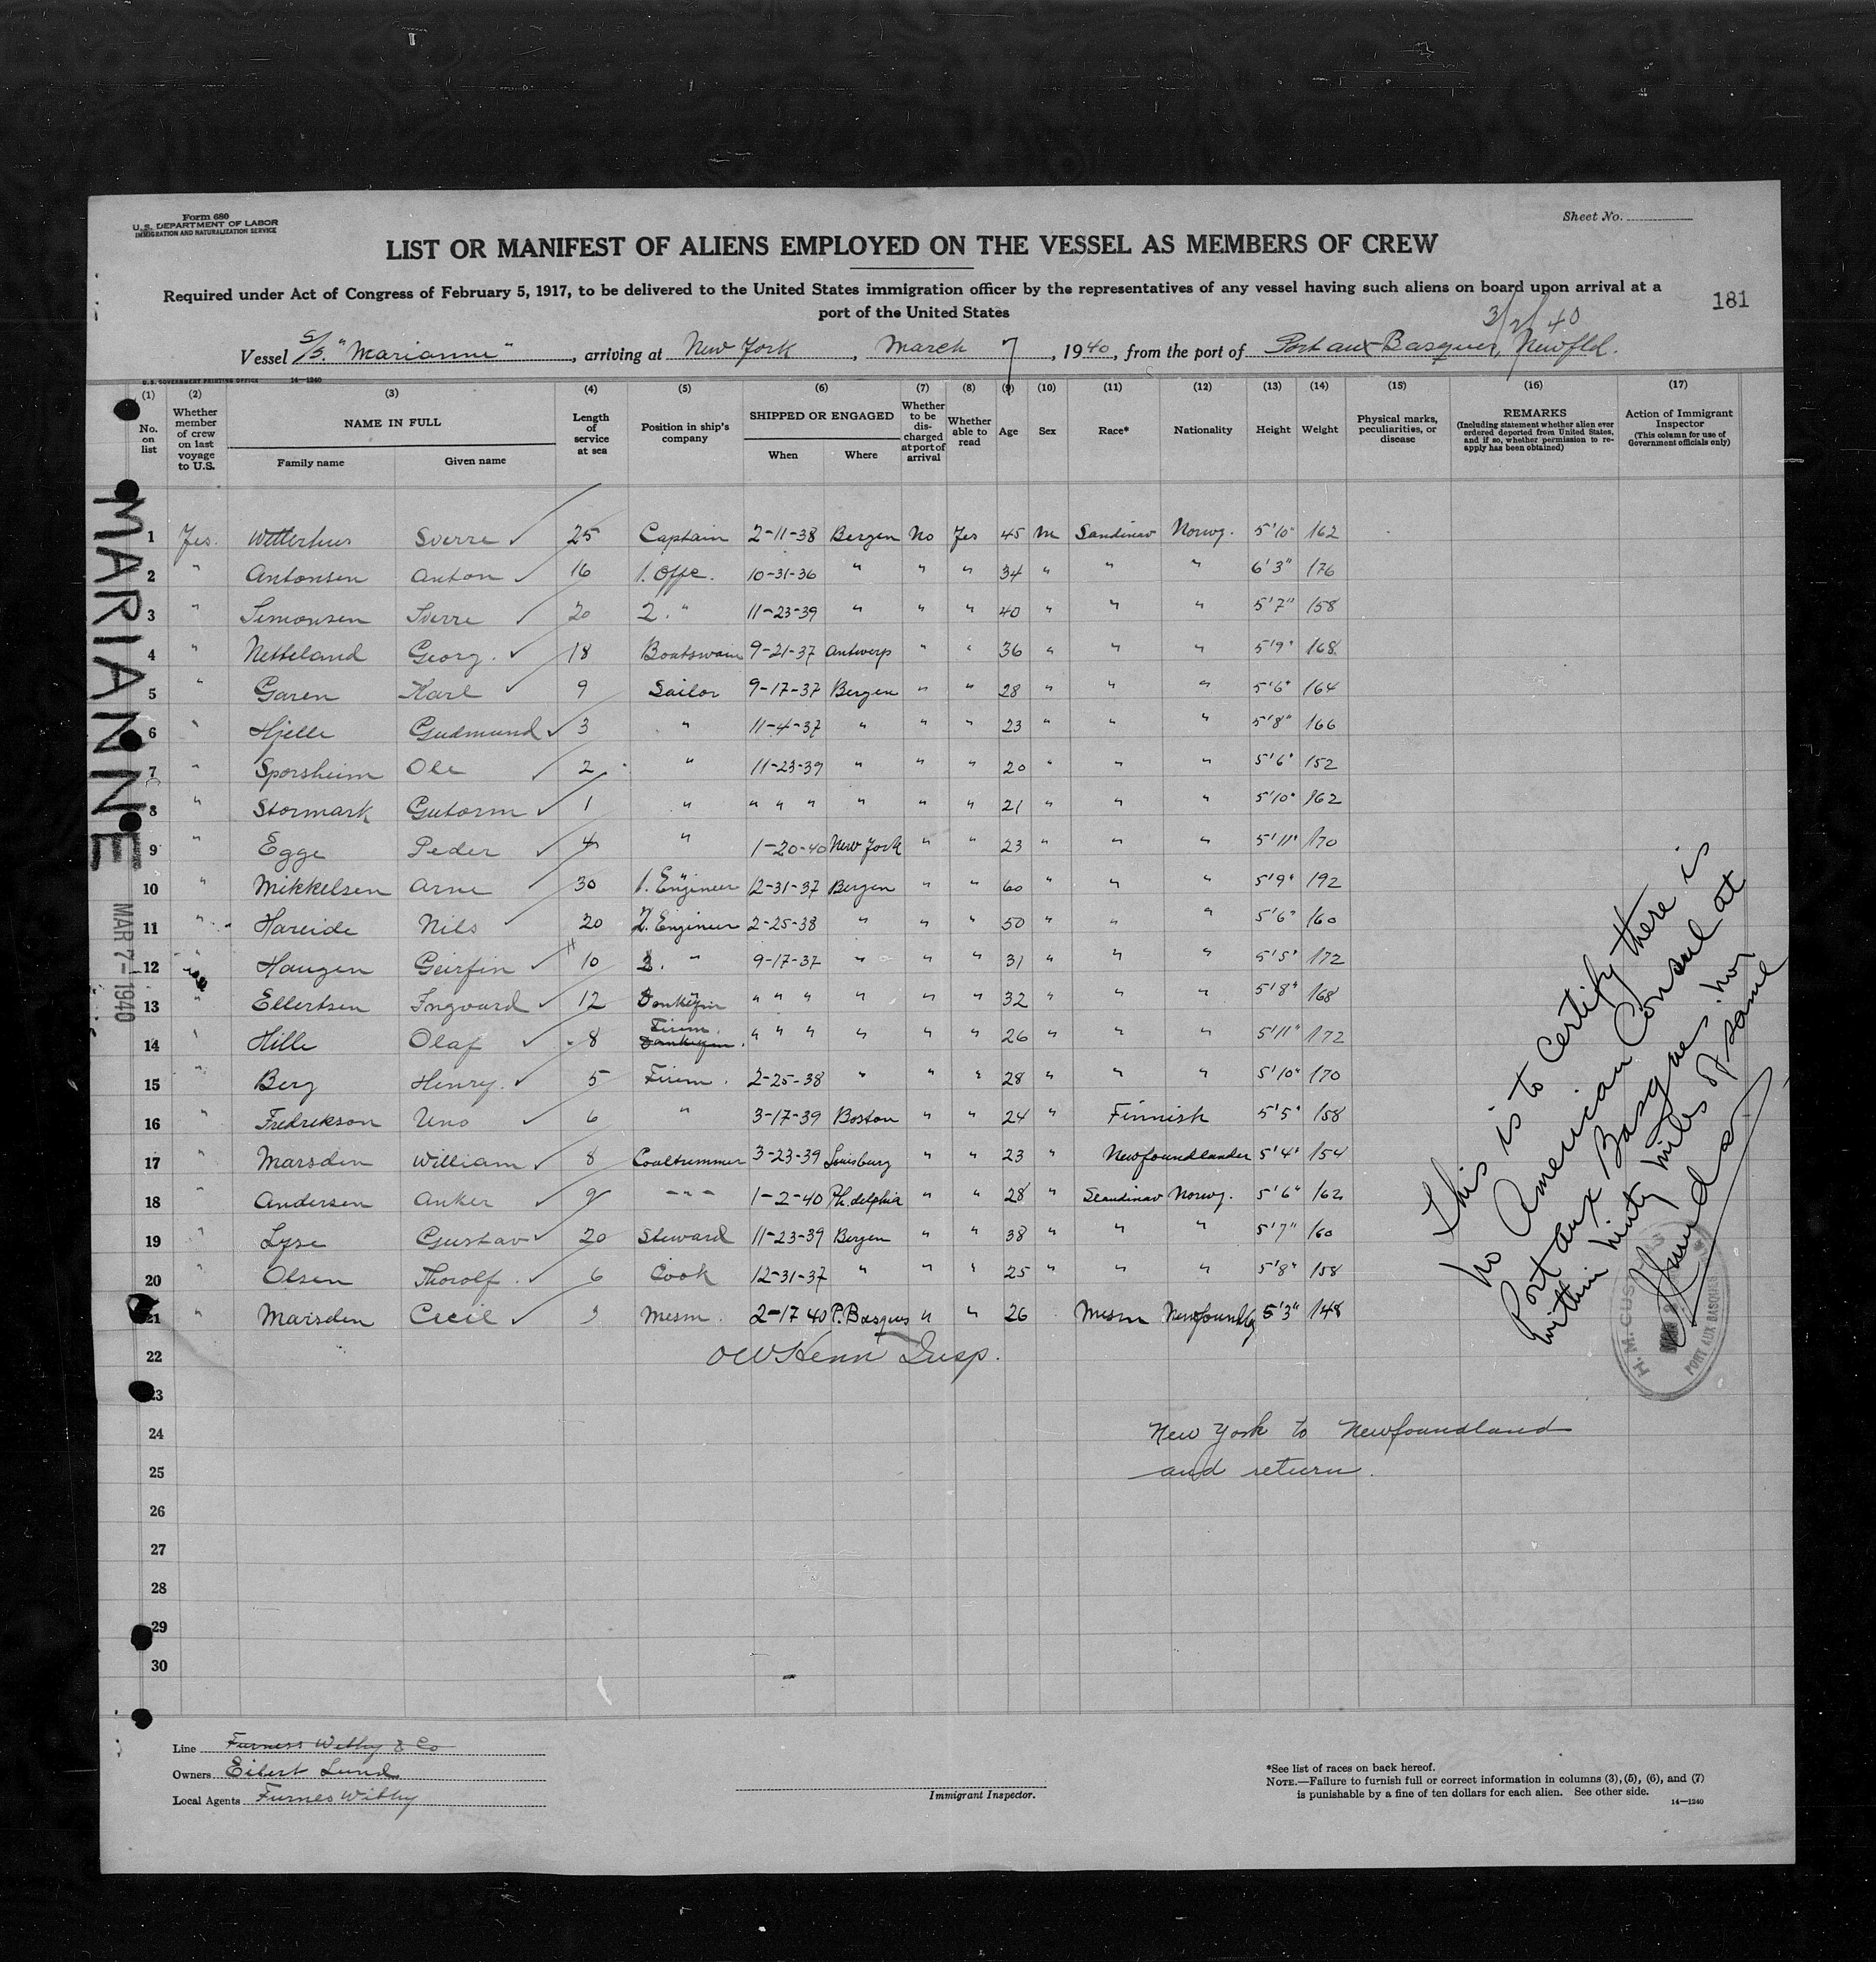 Form 680
U.S. DEPARTMENT OF LABOR
IMMIGRATION AND NATURALIZATION SERVICE
Sheet No.
LIST OR MANIFEST OF ALIENS EMPLOYED ON THE VESSEL AS MEMBERS OF CREW
Required under Act of Congress of February 5, 1917, to be delivered to the United States immigration officer by the representatives of any vessel having such aliens on board upon arrival at a
port of the United States
181
3/2/40
Vessel S/S. "Marianne", arriving at New York, March 7, 1940, from the port of Port aux Basques, Newfld.
U.S. GOVERNMENT PRINTING OFFICE 14—1240
(1) (2) (3) (4) (5) (6) (7) (8) (9) (10) (11) (12) (13) (14) (15) (16) (17)
No. on list
Whether member of crew on last voyage to U.S.
NAME IN FULL
Family name Given name
Length of service at sea
Position in ship's company
SHIPPED OR ENGAGED
When Where
Whether to be discharged at port of arrival
Whether able to read
Age
Sex
Race*
Nationality
Height
Weight
Physical marks, peculiarities, or disease
REMARKS
(Including statement whether alien ever ordered deported from United States, and if so, whether permission to reapply has been obtained)
Action of Immigrant Inspector
(This column for use of Government officials only)
MARIANNE
MAR 7-1940
1 Yes. Witterhus Sverre 25 Captain 2-11-38 Bergen No Yes 45 m Sandinav Norwg. 5'10" 162
2 " Antonsen Anton 16 1. Offc. 10-31-36 " " " 34 " " " 6'3" 176
3 " Simonsen Sverre 20 2. " 11-23-39 " " " 40 " " " 5'7" 158
4 " Netteland Georg. 18 Boatswain 9-21-37 Antwerp " " 36 " " " 5'9" 168
5 " Garen Karl 9 Sailor 9-17-37 Bergen " " 28 " " " 5'6" 164
6 " Hjelle Gudmund 3 " 11-4-37 " " " 23 " " " 5'8" 166
7 " Sporsheim Ole 2 " 11-23-39 " " " 20 " " " 5'6" 152
8 " Stormark Gutorm 1 " " " " " " " 21 " " " 5'10" 162
9 " Egge Peder 4 " 1-20-40 New York " " 23 " " " 5'11" 170
10 " Mikkelsen Arne 30 1. Engineer 12-31-37 Bergen " " 60 " " " 5'9" 192
11 " Hareide Nils 20 2. Engineer 2-25-38 " " " 50 " " " 5'6" 160
12 " Haugen Geirfin 10 3. " 9-17-37 " " " 31 " " " 5'5" 172
13 " Ellertsen Ingvard 12 " " " " " " 32 " " " 5'8" 168
14 " Hille Olaf 8 Firem. " " " " " " 26 " " " 5'11" 172
15 " Berg Henry. 5 Firem. 2-25-38 " " " 28 " " " 5'10" 170
16 " Fredrekson Uno 6 " 3-17-39 Boston " " 24 " Finnish 5'5" 158
17 " Marsden William 8 Coaltrimmer 3-23-39 Louisburg " " 23 " Newfoundlander 5'4" 154
18 " Andersen Anker 9 " " " 1-2-40 Ph.delphia " " 28 " Scandinav Norwg. 5'6" 162
19 " Lyse Gustav 20 Steward 11-23-39 Bergen " " 38 " " " 5'7" 160
20 " Olsen Thorolf 6 Cook 12-31-37 " " " 25 " " " 5'8" 158
21 " Marsden Cecil 3 Mesm. 2-17 40 P. Basques " " 26 Mesm 5'3" 148
22 OW Henn Insp.
23
24 New York to Newfoundland
25 and return.
26
27
28
29
30
This is to certify there is
no American Consul at
Port aux Basques, nor
within ninty miles of same
H. M. CUSTOMS
PORT AUX BASQUES
Line Furness Withy & Co
Owners Eibert Lund
Local Agents Furnes Withy
Immigrant Inspector.
*See list of races on back hereof.
NOTE.—Failure to furnish full or correct information in columns (3), (5), (6), and (7)
is punishable by a fine of ten dollars for each alien. See other side.
14—1240